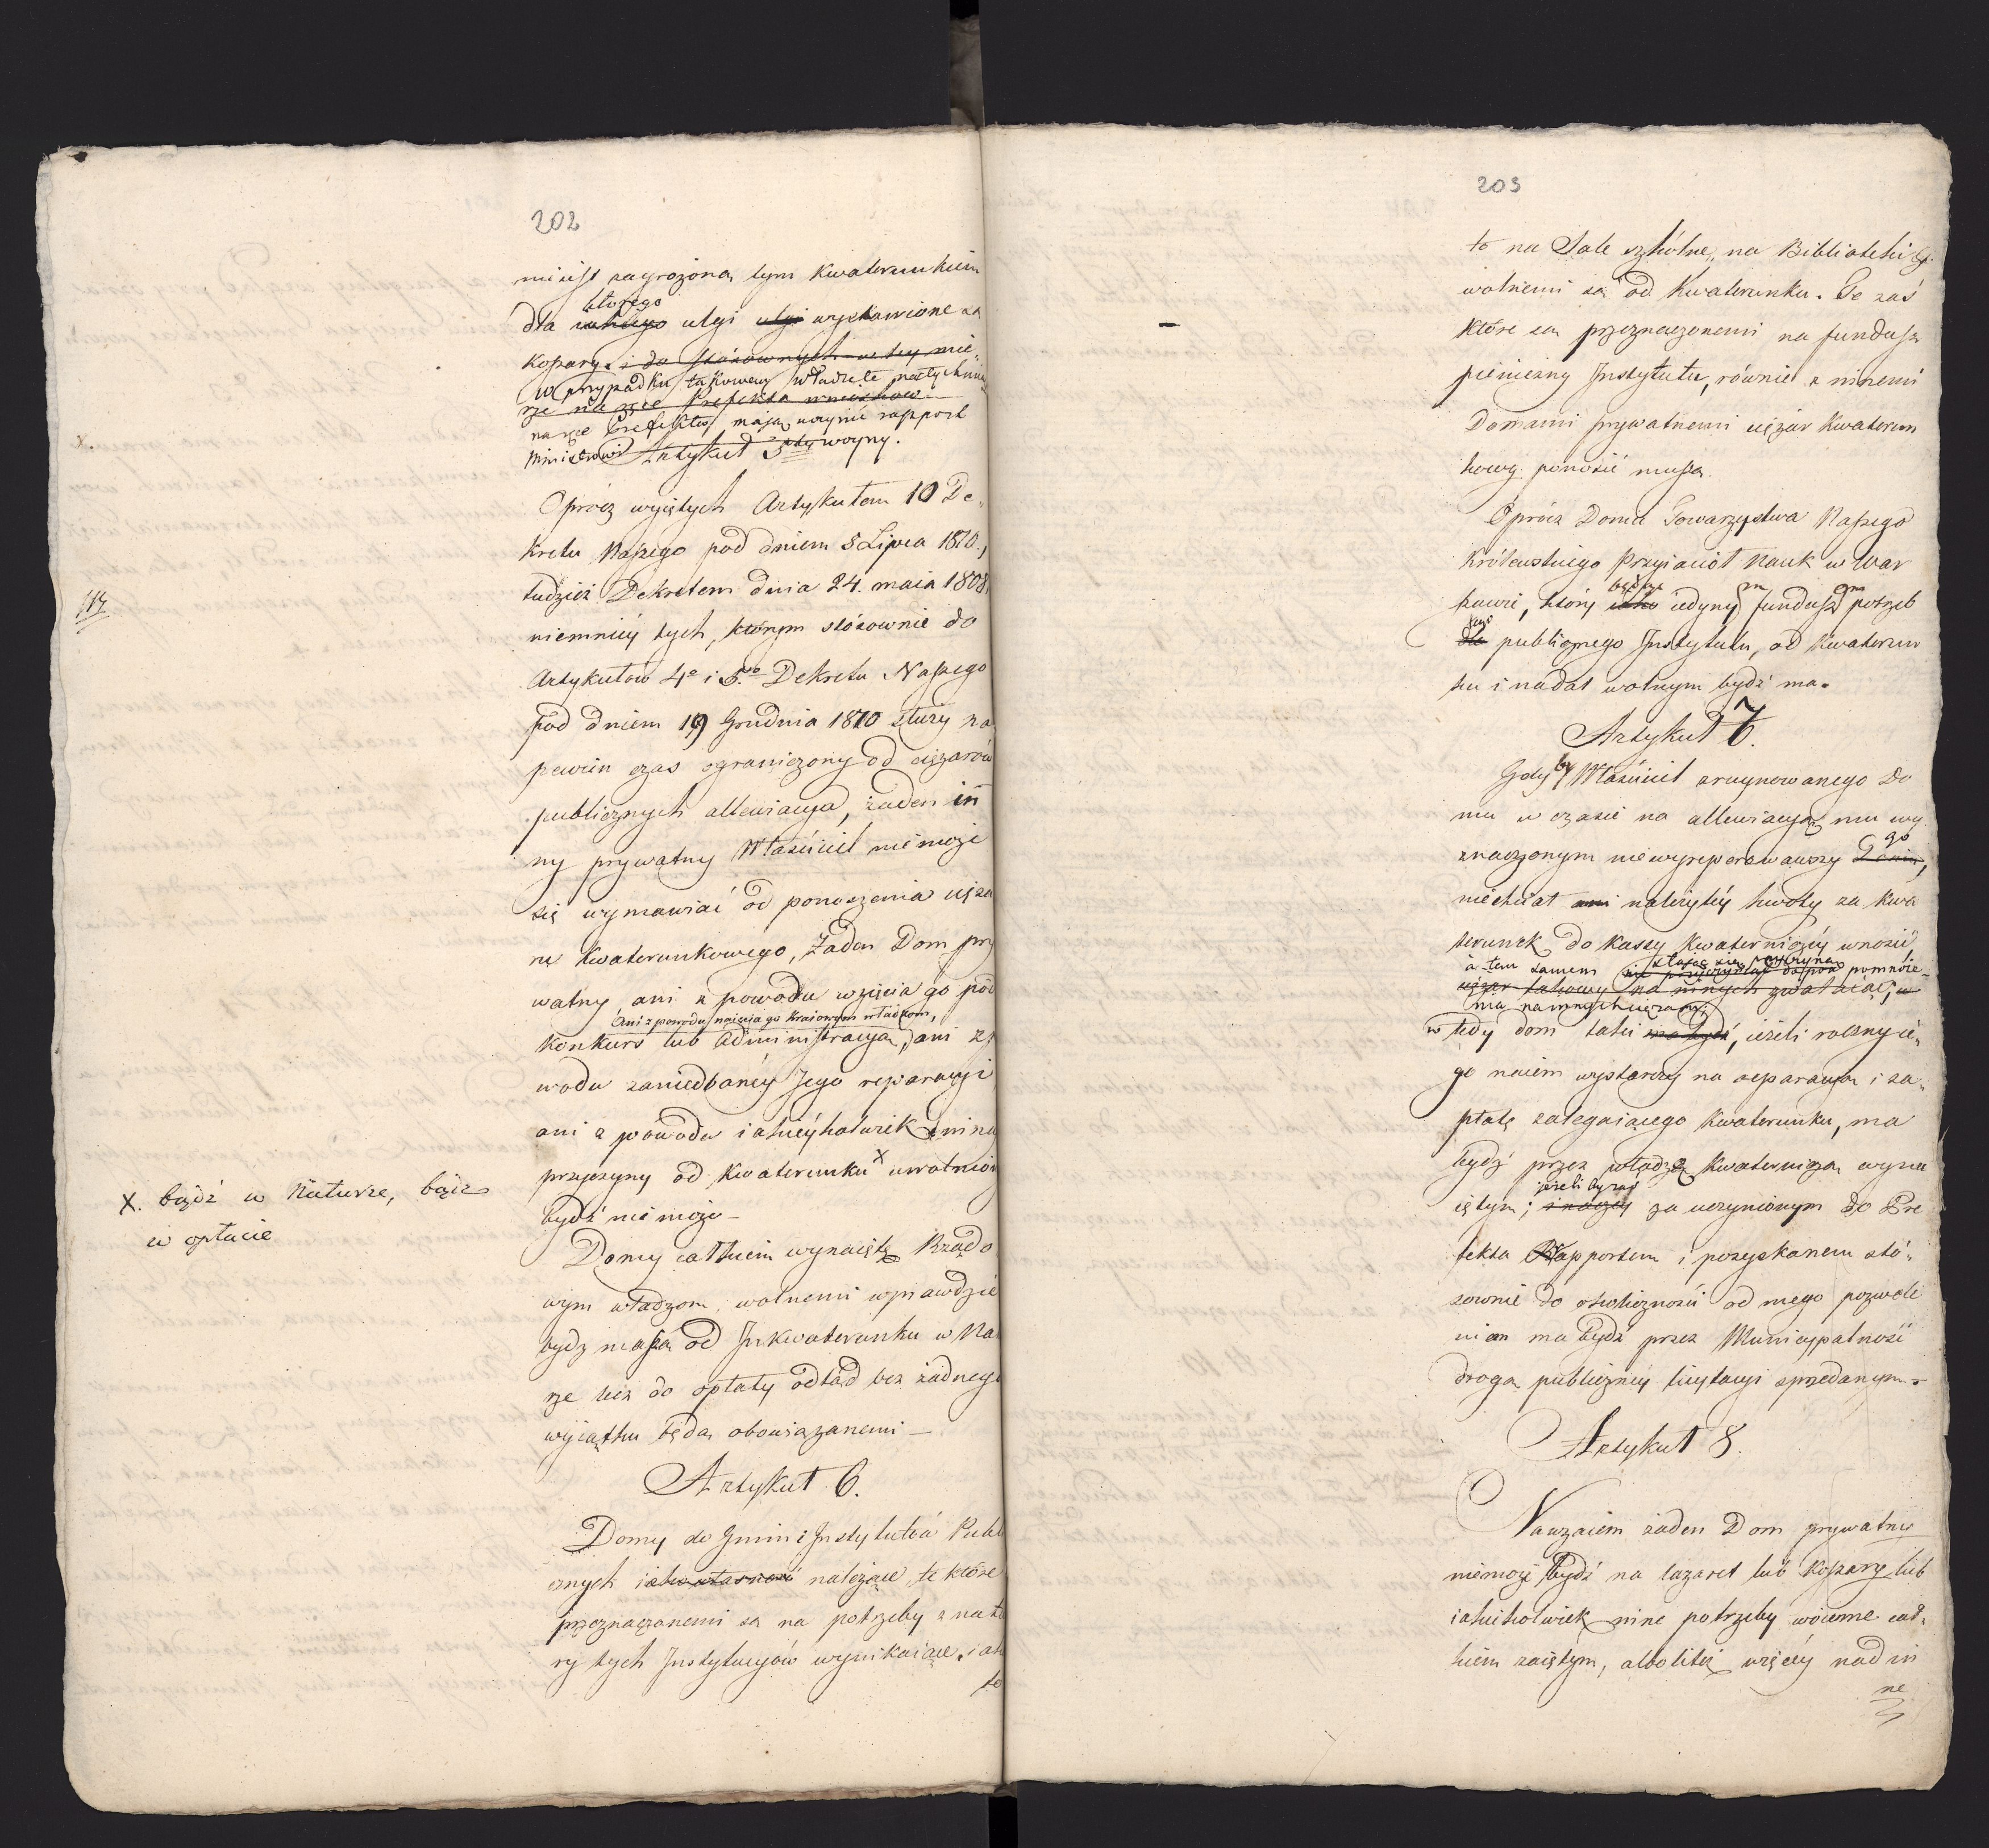 202
mieyst zagrożona tym Kwaterunkiem
którego
dla iakiego ulgi ulgi wystawione są
Koszary. i do stósownych w tey mie,
W przypadku takowem władze te natychmia
rze na ręce Prefekta wniosków
na ręce Prefektów mają uczynić rapport
Ministrowi woyny.
Artykuł 5ty
Oprócz wyiętych Artykułem 10 De,
kretu Naszego pod dniem 5 Lipca 1810.,
tudzież Dekretem dnia 24. maia 1808
niemniéy tych, którym stósownie do
Artykułów 4o i 5o Dekretu Naszego
pod dniem 19 Grudnia 1810 służy na
pewien czas ograniczony od ciężarów
publicznych allewiacya, żaden in
ny prywatny Właściciel nie może
się wymawiać od ponoszenia cięża
ru Kwaterunkowego, Żaden Dom pry
watny ani z powodu wzięcia go pod
Ani z powodu naięcia go kraiowym władzom,
Konkurs lub Administracyą, ani z p
wodu zaniedbanéy Jego reparacyi
ani z powodu iakiéykolwiek inney
przyczyny od Kwaterunku X uwolnion
bydź nie może –
X. bądź w Naturze, bądź
w opłacie
Domy całkiem wynaięte Rządo
wym władzom, wolnemi wprawdzie
bydz maią od Inkwaterunku w Na
rze lecz do opłaty odtąd bez żadnego
wyiątku będą obowiązanemi –
Artykuł 6.
Domy do Gmin i Instytutów Publi
cznych iako własność należące, te które
przeznaczonemi są na potrzeby z natu
ry tych Instytucyów wynikaiące, iak
to
203
to na Sale szkólne, na Biblioteki &c.
wolnemi są od Kwaterunku. Te zaś
które są przeznaczonemi na fundusz
pieniężny Instytutu, równie z innemi
Domami prywatnemi ciężar Kwaterun
kowy ponosić muszą.
Oprócz Domu Towarzystwa Naszego
Królewskiego Przyiaciół Nauk w War
będąc
szawie, który iako iedynym funduszem potrzeb
tego
dla publicznego Instytutu, od Kwaterun
ku i nadal wolnym bydź ma.
Artykuł 7.
Gdyby Właściciel zruynowanego Do
mu w czasie na allewiacyą mu wy
go
znaczonym niewyreperowawszy Domu,
niechciał ani należytéy kwoty za kwa
terunek do kassy Kwaterniczéy wnosić,
stając się przyczyną
a tem samem nie przyczyniał do pomnoże
ciężar takowy na innych zwalaiąc, w
nia na innych ciężaru
wtedy dom taki ma bydź, ieżeli roczny ie,
go naiem wystarczy na reparacyą i za,
płatę zalegaiącego Kwaterunku, ma
bydź przez władzę Kwaterniczą wyna
ieżeli by zaś
iętym; inaczey za uczynionym do Pre
fekta Rapportem i pozyskanem stó,
sownie do okoliczności od niego pozwole
niem ma bydź przez Municypalność
drogą publicznéy licytacyi sprzedanym.
Artykuł 8.
Nawzaiem żaden Dom prywatny
niemoże bydź na lazaret lub Koszary lub
iakiekolwiek inne potrzeby woienne cał,
kiem zaiętym, albo liteż więcéy nad in
ne